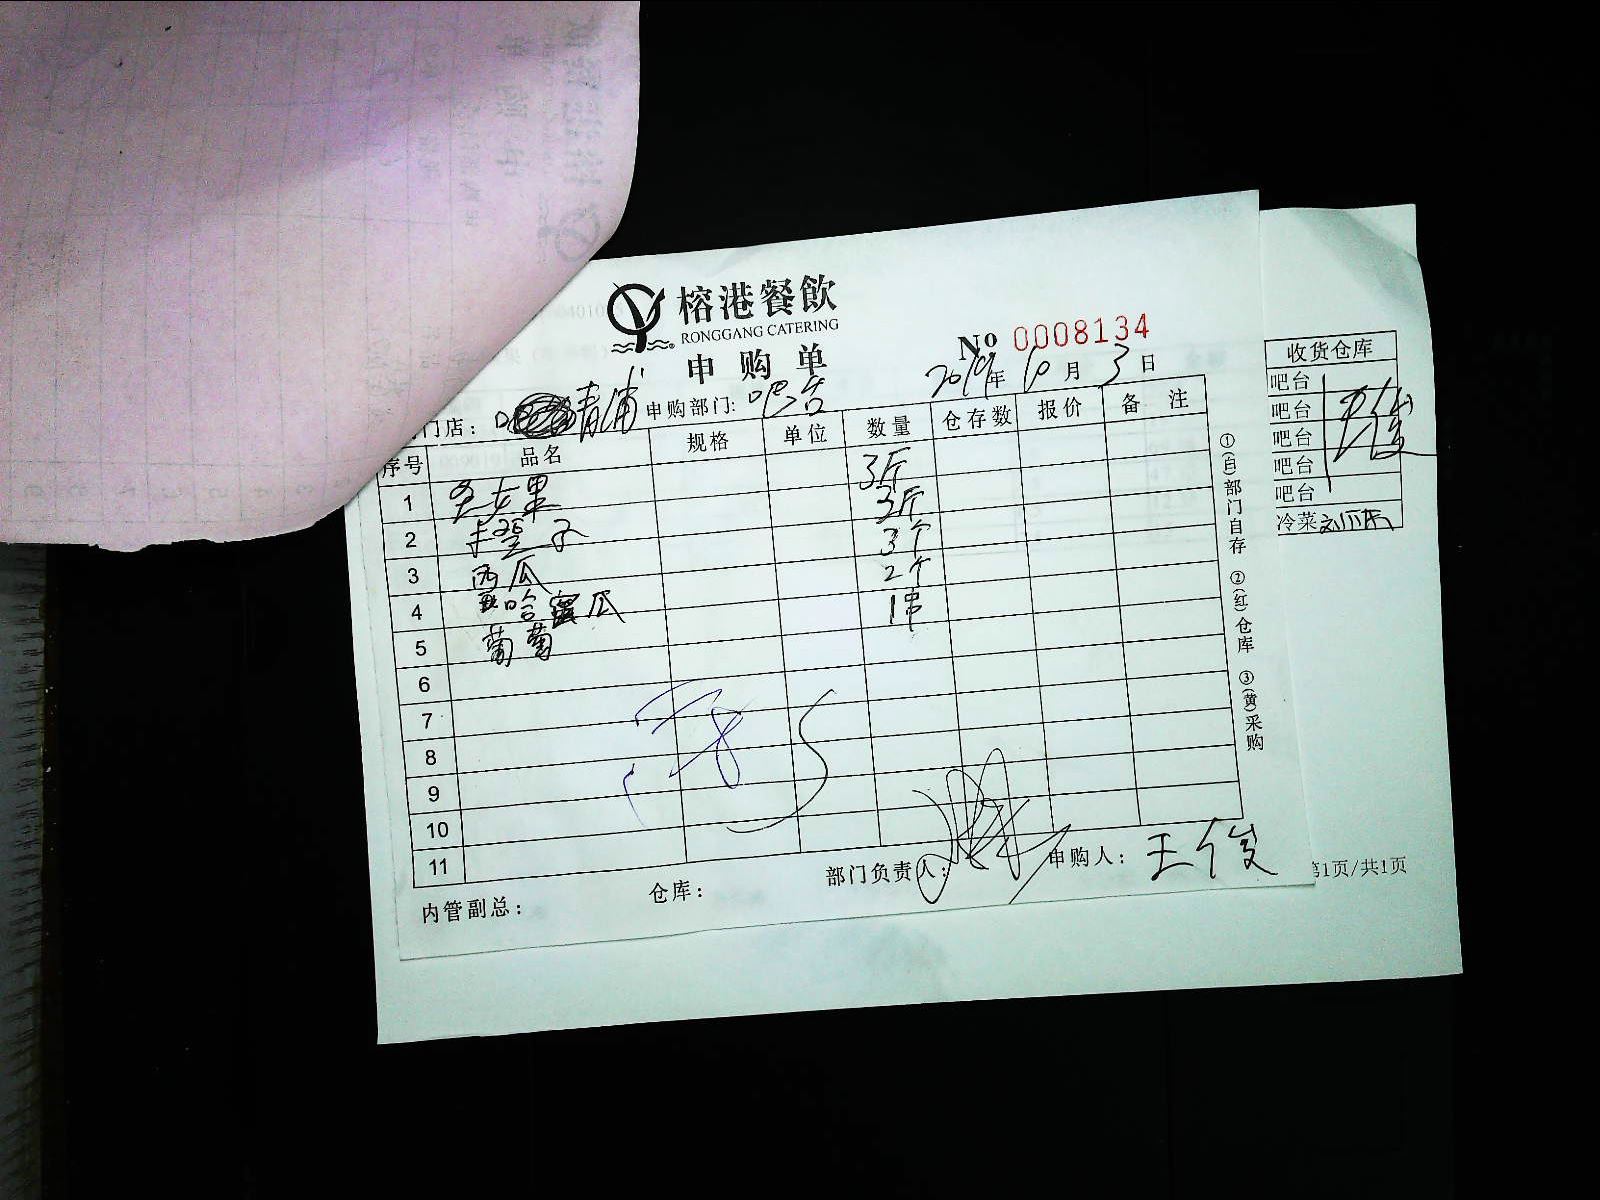 榕港餐飲
RONGGANG CATERING
申购单
No 0008134
门店: 青浦 申购部门: 吧台 2019年10月3日
序号 品名 规格 单位 数量 仓存数 报价 备注
1 圣女果 3斤
2 卡橙子 3斤
3 西瓜 3个
4 哈蜜瓜 2个
5 葡萄 1串
6
7
8
9
10
11
内管副总: 仓库: 部门负责人: 申购人: 王俊
①(自)部门自存 ②(红)仓库 ③(黄)采购
收货仓库
吧台
吧台
吧台
吧台
吧台
冷菜
第1页/共1页